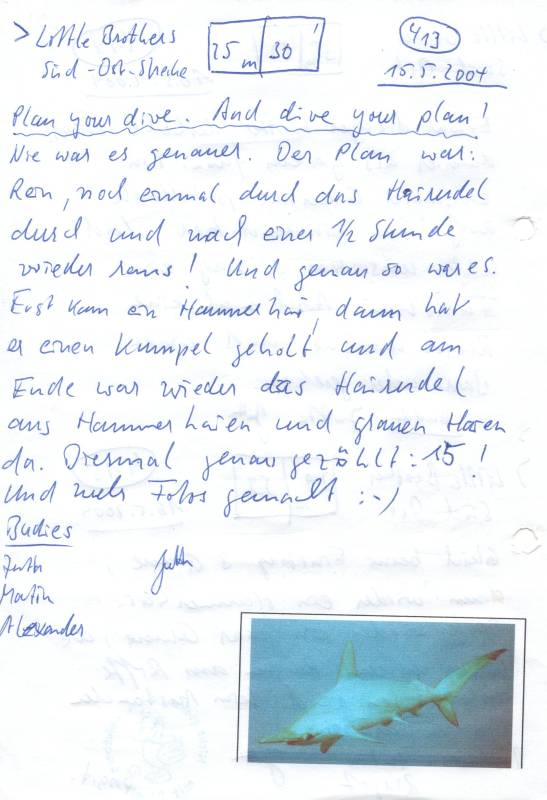 > Little Brothers
Süd-Ost-Strecke
25 m | 30'
413
15.5.2004
Plan your dive. And dive your plan!
Nie war es genauer. Der Plan war:
Rein, noch einmal durch das Hairudel
durch und nach einer 1/2 Stunde
wieder raus! Und genau so war es.
Erst kam ein Hammerhai, dann hat
er einen Kumpel geholt und am
Ende war wieder das Hairudel
aus Hammerhaien und grauen Haien
da. Diesmal genau gezählt: 15!
Und mehr Fotos gemacht :-)
Budies
Martin
Alexander